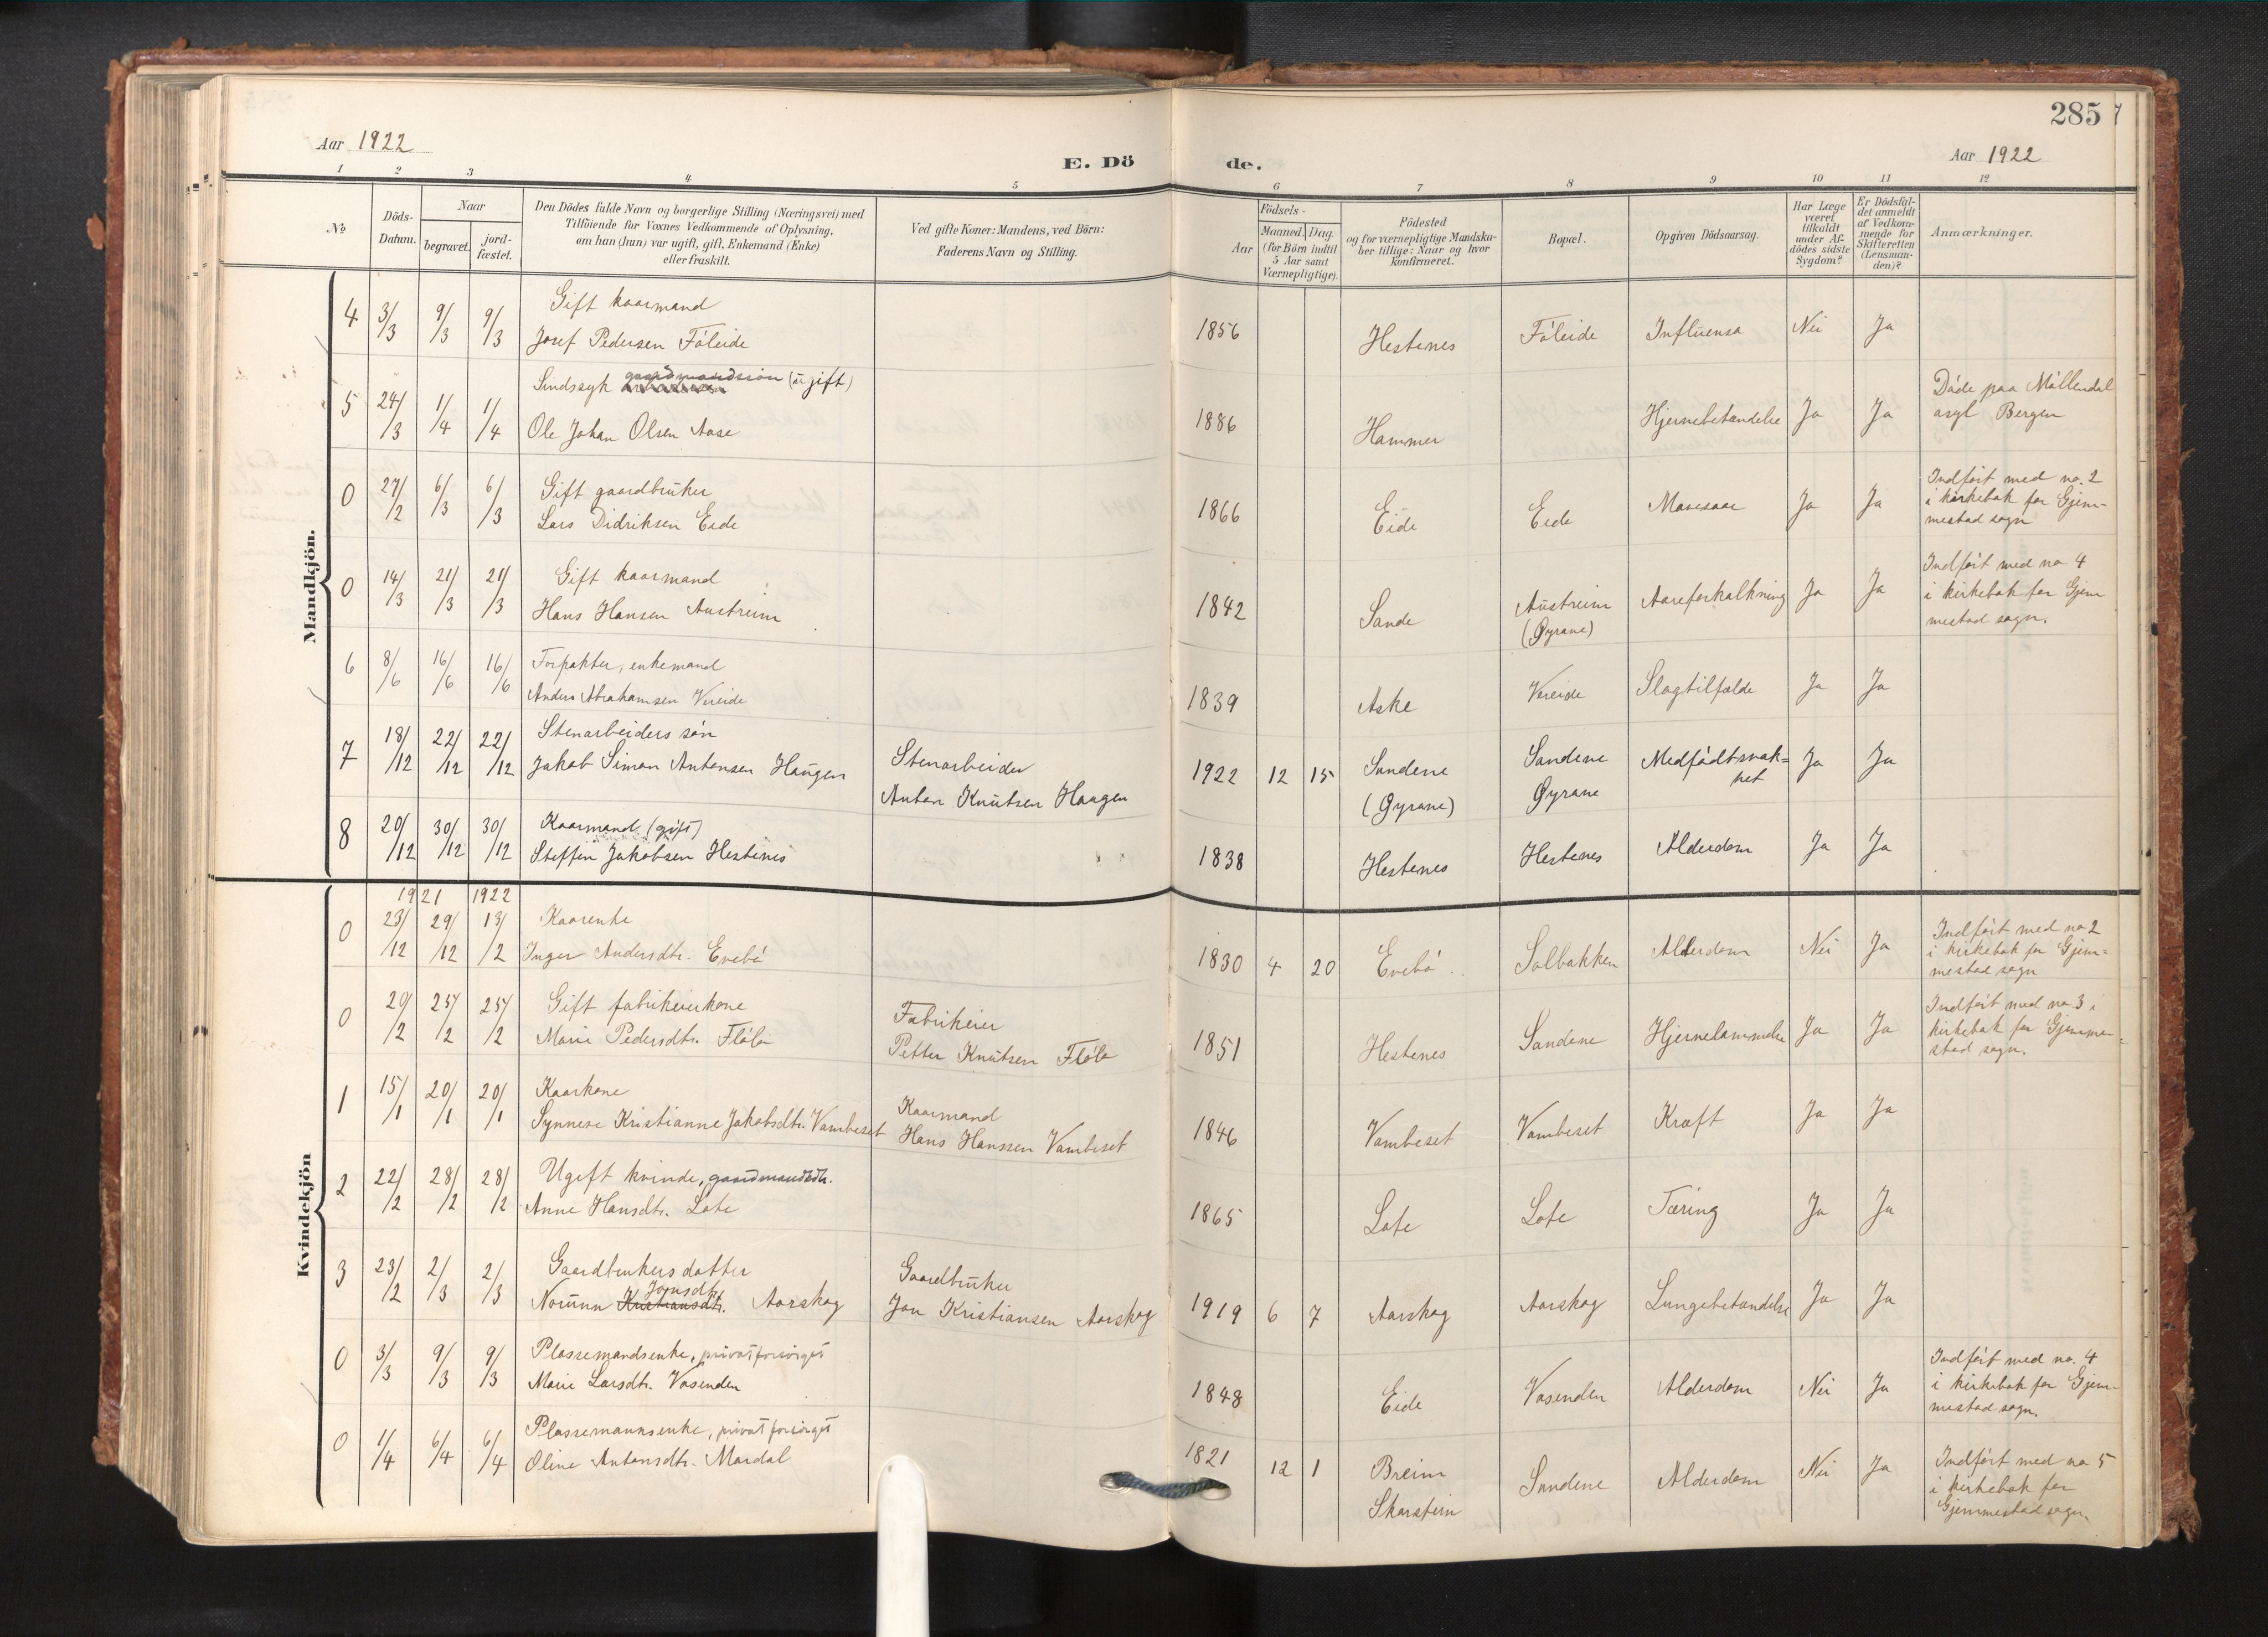 285
Aar 1922
E. Dö de.
Aar 1922
1 2 3 4 5 6 7 8 9 10 11 12
No
Döds-
Datum.
Naar
begravet.
jord-
fæstet.
Den Dödes fulde Navn og borgerlige Stilling (Næringsvei) med
Tilföiende for Voxnes Vedkommende af Oplysning,
om han (hun) var ugift, gift, Enkemand (Enke)
eller fraskilt.
Ved gifte Koner: Mandens, ved Börn:
Faderens Navn og Stilling.
Födsels-
Aar
Maaned. Dag.
(for Börn indtil
5 Aar samt
Værnepligtige).
Födested
og for værnepligtige Mandska-
ber tillige: Naar og hvor
konfirmeret.
Bopæl.
Opgiven Dödsaarsag.
Har Læge
været
tilkaldt
under Af-
dödes sidste
Sygdom?
Er Dödsfal-
det anmeldt
af Vedkom-
mende for
Skifteretten
(Lensman-
den)?
Anmærkninger.
Mandkjön.
4 3/3 9/3 9/3
Gift kaarmand
Josef Pedersen Föleide
1856 Hestenes Föleide Influensa Nei Ja
5 24/3 1/4 1/4
Sindssyk gaardmandssön (ugift)
Ole Johan Olsen Aase
1886 Hammer Hjernebetændelse Ja Ja
Döde paa Möllendal
asyl Bergen
0 27/2 6/3 6/3
Gift gaardbruker
Lars Didriksen Eide
1866 Eide Eide Mavesaar Ja Ja
Indfört med no. 2
i kirkebok for Gjem-
mestad sogn
0 14/3 21/3 21/3
Gift kaarmand
Hans Hansen Austreim
1842 Sande Austreim
(Øyrane)
Aareforkalkning Ja Ja
Indfört med no 4
i kirkebok for Gjem
mestad sogn.
6 8/6 16/6 16/6
Forpakter, enkemand
Anders Abrahamsen Vereide
1839 Aske Vereide Slagtilfælde Ja Ja
7 18/12 22/12 22/12
Stenarbeiders sön
Jakob Simon Antonsen Haugen
Stenarbeider
Anton Knutsen Haugen
1922 12 15 Sandene
(Øyrane)
Sandene
Øyrane
Medfödt svak=
het
Ja Ja
8 20/12 30/12 30/12
Kaarmand (gift)
Steffen Jakobsen Hestenes
1838 Hestenes Hestenes Alderdom Ja Ja
Kvindekjön
1921 1922
0 23/12 29/12 13/2
Kaarenke
Inger Andersdtr. Evebö
1830 4 20 Evebö Solbakken Alderdom Nei Ja
Indfört med no 2
i kirkebok for Gjem=
mestad sogn
0 20/2 25/2 25/2
Gift fabrikeierkone
Marie Pedersdtr. Flölo
Fabrikeier
Petter Knutsen Flölo
1851 Hestenes Sandene Hjernelammelse Ja Ja
Indfört med no 3 i
kirkebok for Gjemme-
stad sogn.
1 15/1 20/1 20/1
Kaarkone
Synneve Kristianne Jakobsdtr. Vambeset
Kaarmand
Hans Hanssen Vambeset
1846 Vambeset Vambeset Kræft Ja Ja
2 22/2 28/2 28/2
Ugift kvinde, gaardmandsdtr.
Anne Hansdtr. Lote
1865 Lote Lote Tæring Ja Ja
3 23/2 2/3 2/3
Gaardbrukers datter
Jonsdtr.
Norunn Kristiansdtr. Aarskog
Gaardbruker
Jon Kristiansen Aarskog
1919 6 7 Aarskog Aarskog Lungebetændelse Ja Ja
0 3/3 9/3 9/3
Plassemandsenke, privat forsörget
Marie Larsdtr. Vasenden
1848 Eide Vasenden Alderdom Nei Ja
Indfört med no. 4
i kirkebok for Gjem-
mestad sogn.
0 1/4 6/4 6/4
Plassemannsenke, privat forsörget
Oline Antonsdtr. Mardal
1821 12 1 Breim
Skarstein
Sandene Alderdom Nei Ja
Indfört med no 5
i kirkebok for
Gjemmestad sogn.